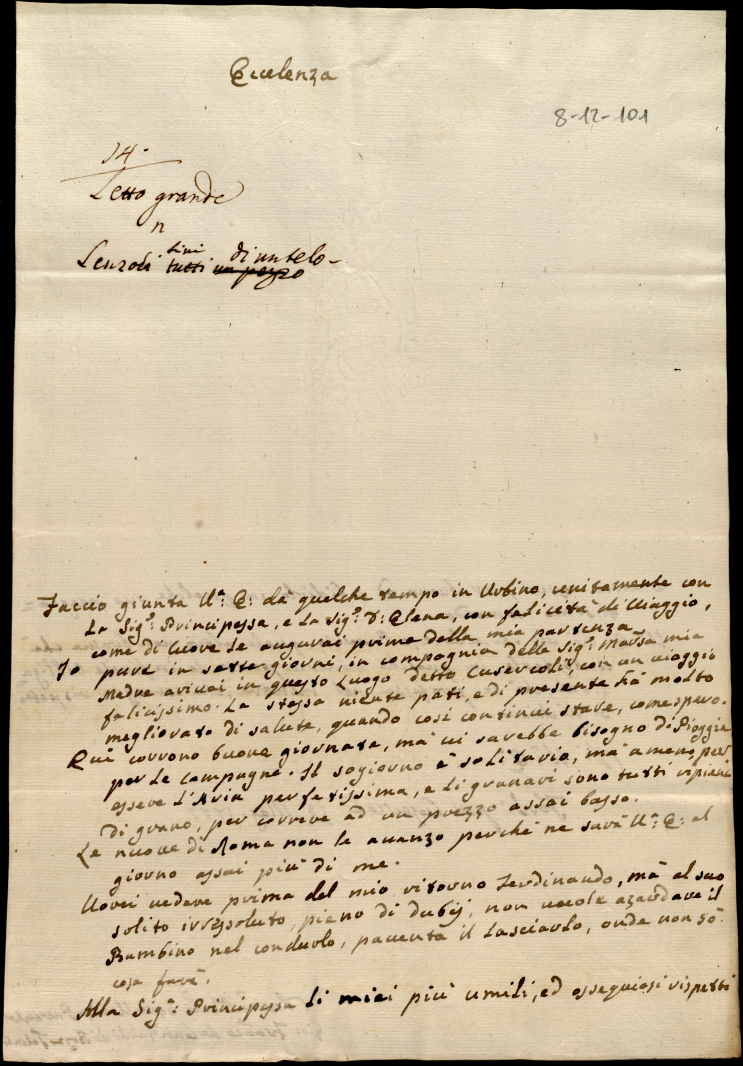 Eccelenza
8-12-101
14.
Letto grande
n
Lenzoli fini tutti un pezzo di un telo-
Faccio giunta V.ª E: da quelche tempo in Urbino, unitamente con
La Sig.ª Principessa, e la Sig.ª D: Elena, con felicità di Viaggio,
come di Cuore Le augurai prima della mia partenza.
Io pure in sette giorni, in compagnia della Sig.ª Mar.sa mia
Madre arivai in questo Luogo detto Cusercoli, con un viaggio
felicissimo. La stessa niente patì, e di presente hà molto
megliorato di salute, quando così continui stare, come spero.
Quì corrono buone giornate, mà ci sarebbe bisogno di Pioggie
per Le Campagne. Il sogiorno è solitario, mà ameno, per
essere l'Aria perfetissima, e li granari sono tutti ripieni
di grano, per correre ad un prezzo assai basso.
Le nuove di Roma non le avanzo perchè ne sarà V.ª E: al
giorno assai più di me.
Vorei vedere prima del mio ritorno Ferdinando, mà al suo
solito irresoluto, pieno di dubij, non vuole azardare il
Bambino nel condurlo, paventa il Lasciarlo, onde non sò
cosa farà.
Alla Sig.ª Principessa li miei più umili, ed ossequiosi rispetti